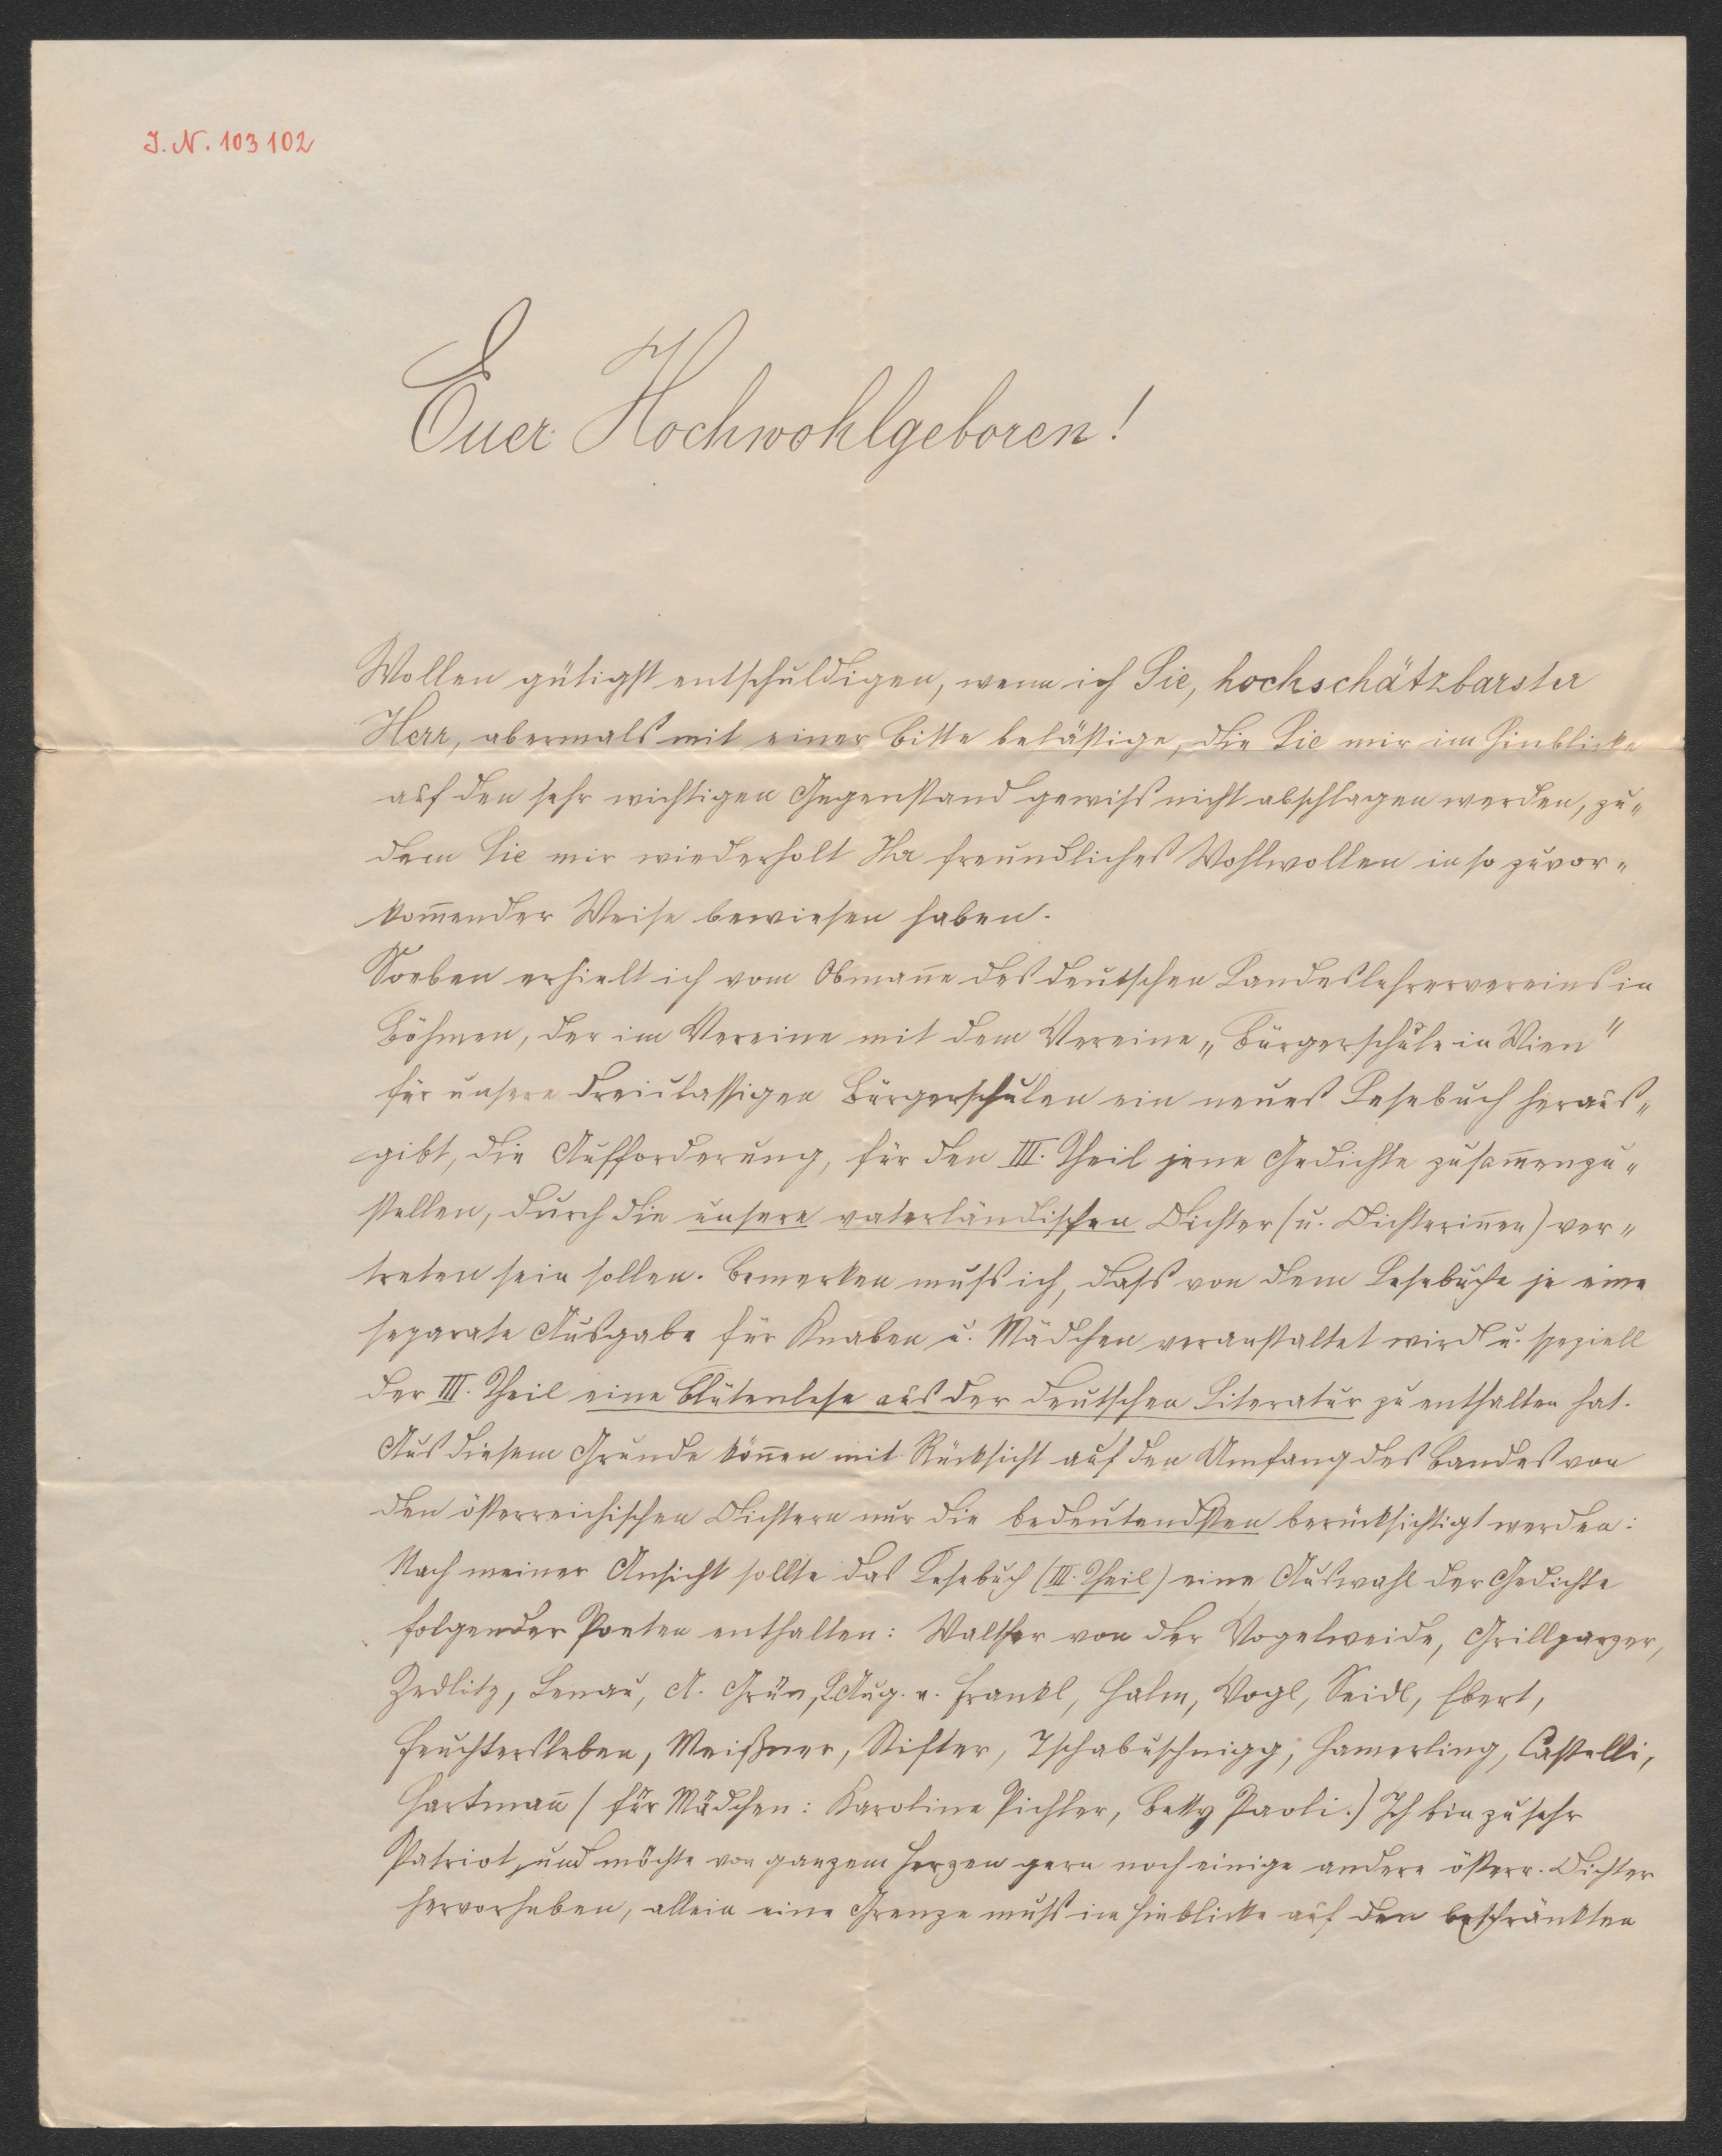 J. N. 103102
Euer Hochwohlgeboren!
Wollen gütigst entschuldigen, wenn ich Sie, hochschätzbarster
Herr, abermals mit einer Bitte belästige, die Sie mir im Hinblicke
auf den sehr wichtigen Gegenstand gewiss nicht abschlagen werden, zu„
dem Sie mir wiederholt Ihr freundliches Wohlwollen in so zuvor„
kom̅ender Weise bewiesen haben.
Soeben erhielt ich vom Obman̅e des deutschen Landeslehrervereins in
Böhmen, der im Vereine mit dem Vereine „Bürgerschule in Wien"
für unsere dreiclassigen Bürgerschulen ein neues Lesebuch heraus„
gibt, die Aufforderung, für den III. Theil jene Gedichte zusam̅enzu„
stellen, durch die unsere vaterländischen Dichter (u. Dichterin̅en) ver„
treten sein sollen. Bemerken muss ich, dass von dem Lesebuche je eine
separate Ausgabe für Knaben u. Mädchen veranstaltet wird u. speziell
der III. Theil eine Blütenlese aus der deutschen Literatur zu enthalten hat.
Aus diesem Grunde kön̅en mit Rücksicht auf den Umfang des Bandes von
den österreichischen Dichtern nur die bedeutendsten berücksichtigt werden:
Nach meiner Ansicht sollte das Lesebuch (III. Theil) eine Auswahl der Gedichte
folgender Poeten enthalten: Walther von der Vogelweide, Grillparzer,
Zedlitz, Lenau, A. Grün, L. Aug. v. Frankl, Halm, Vogl, Seidl, Ebert,
Feuchtersleben, Meißner, Stifter, Tschabuschnigg, Hamerling, Castelli,
Hartman̅ (für Mädchen: Karoline Pichler, Betty Paoli.) Ich bin zu sehr
Patriot, und möchte von ganzem Herzen gern noch einige andere österr. Dichter
hervorheben, allein eine Grenze muss im Hinblicke auf den beschränkten